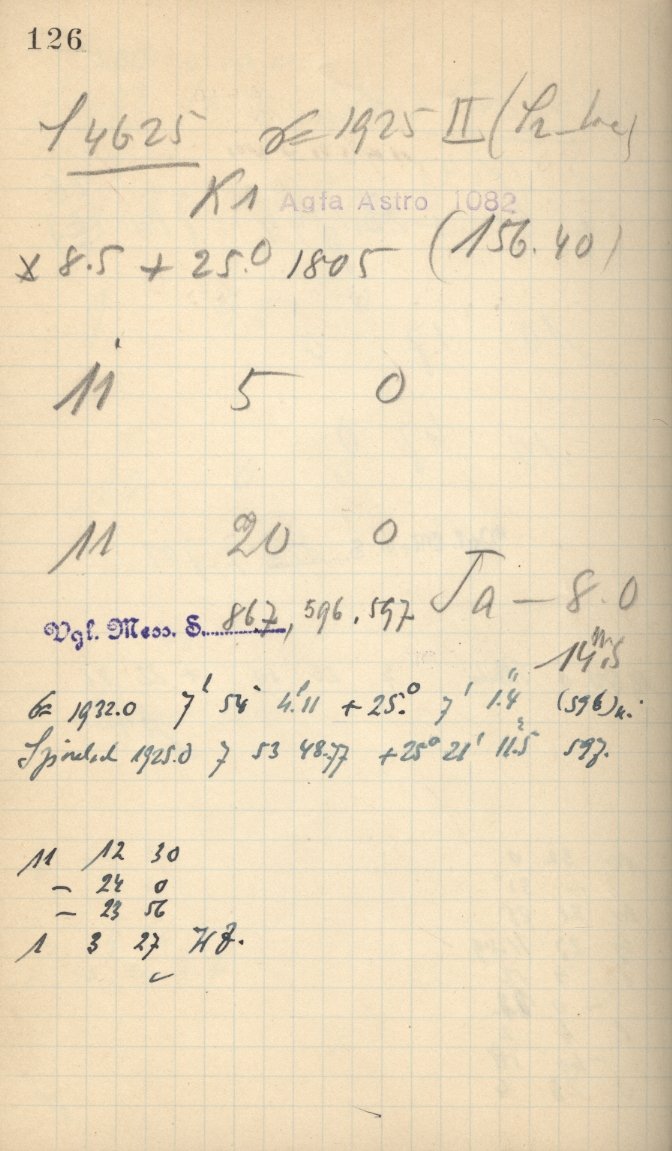 126
S 4625 1925 II
K1 Agfa Astro 1082
8.5 + 25.0 1805 (156.40)
11 5 0
11 20 0
Ta - 8.0
Vgl. Mess. S. 867, 596, 597
14.5
1932.0 7 54 4.11 + 25.° 7' 1.4" (596)
1925.0 7 53 48.77 + 25° 21' 11.5 597.
11 12 30
- 24 0
- 23 56
1 3 27